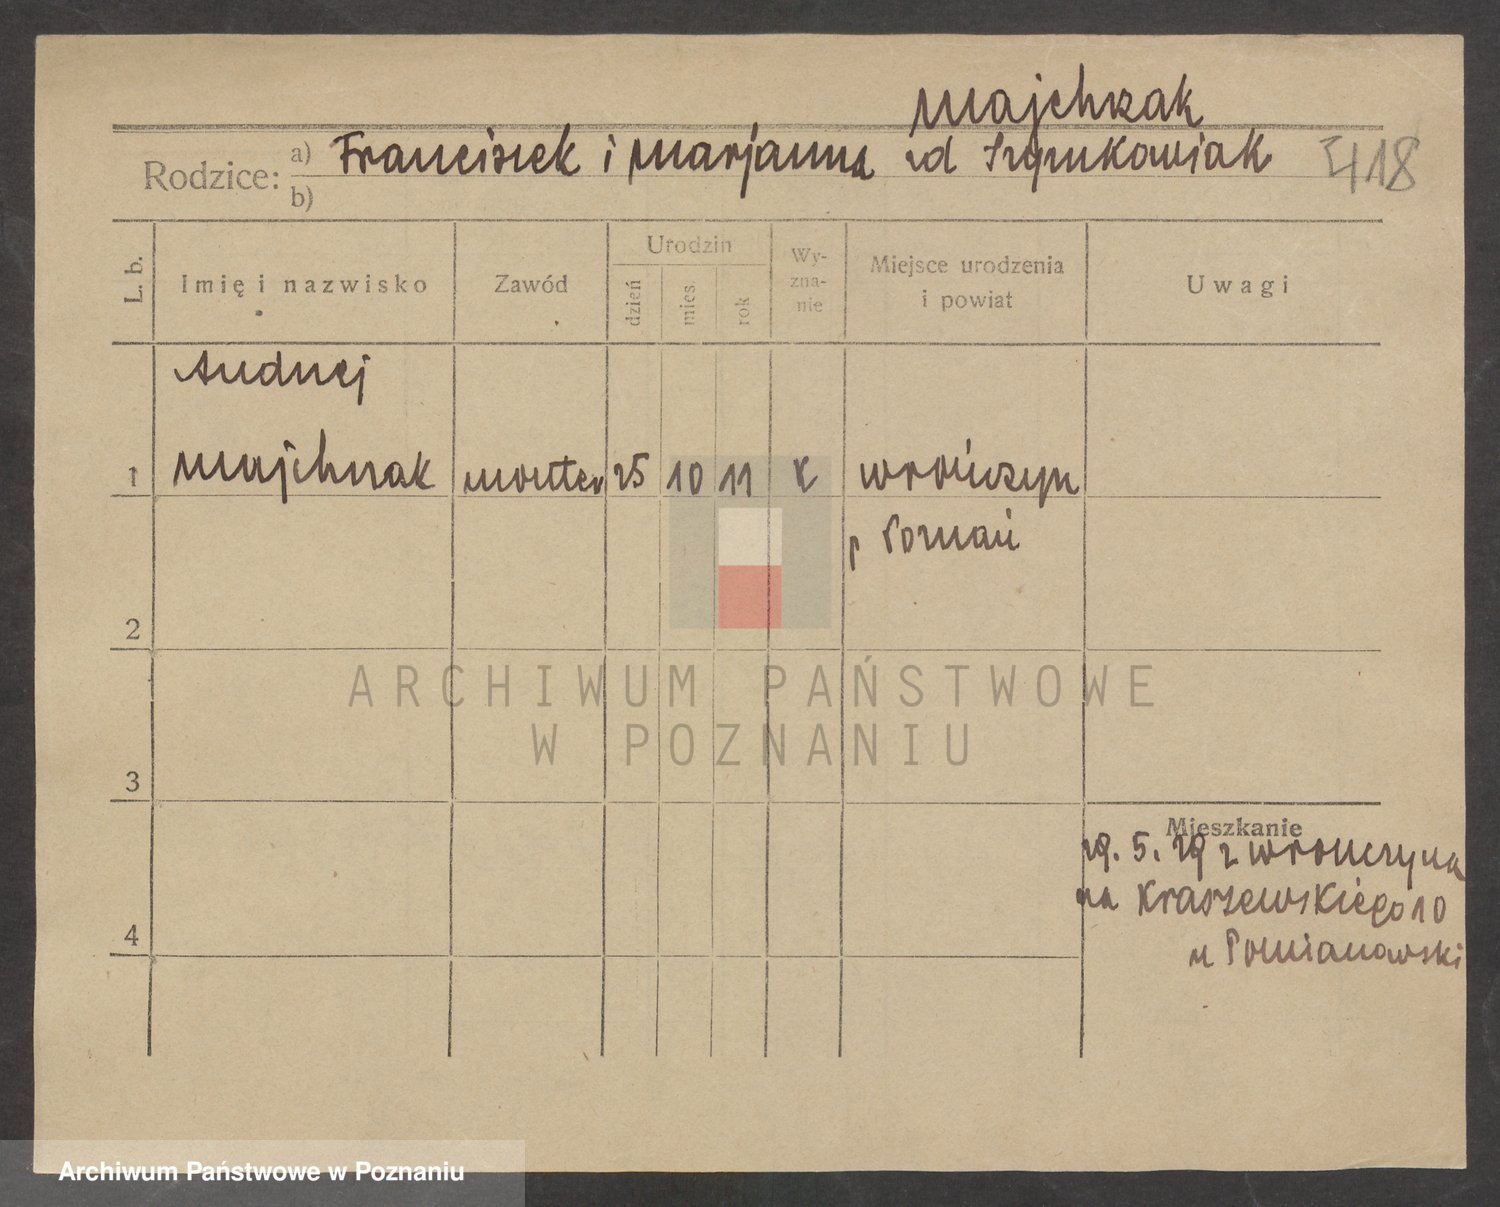 Majchrzak
Rodzice: a) Franciszek i Marjanna zd Szymkowiak 3418
b)
L. b. Imię i nazwisko Zawód Urodzin dzień mies. rok Wy-zna-nie Miejsce urodzenia i powiat Uwagi
Andrzej
1 Majchrzak monter 25 10 11 k Wrończyn
p Poznań
2
ARCHIWUM PAŃSTWOWE
W POZNANIU
3
Mieszkanie
29. 5. 29 z Wrończyna
na Kraszewskiego 10
4
u Pomianowski
Archiwum Państwowe w Poznaniu